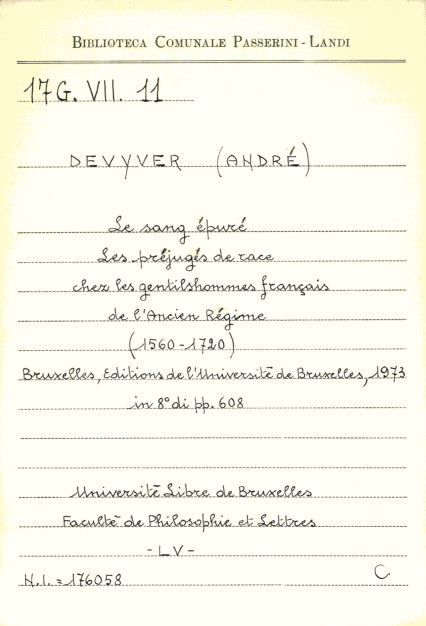 BIBLIOTECA COMUNALE PASSERINI - LANDI
17G. VII. 11
DEVYVER (ANDRÉ)
Le sang épuré
Les préjugés de race
chez les gentilshommes français
de l'Ancien Régime
(1560-1720)
Bruxelles, Editions de l'Université de Bruxelles, 1973
in 8° di pp. 608
Université Libre de Bruxelles
Faculté de Philosophie et Lettres
- LV -
N.I. = 176058
C